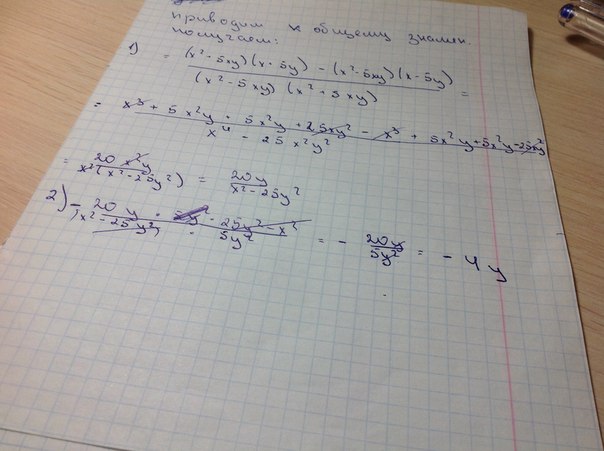 приводим к общему знамен.
получаем:
1) = (x² - 5xy)(x - 5y) - (x² - 5xy)(x - 5y) / (x² - 5xy)(x² + 5xy) =
= x³ + 5x²y + 5x²y + 25xy² - x³ + 5x²y + 5x²y - 25xy² / x⁴ - 25x²y²
= 20x²y / x²(x² - 25y²) = 20y / x² - 25y²
2) - 20y · 25y² - x² / (x² - 25y²) · 5y² = - 20y / 5y² = - 4y